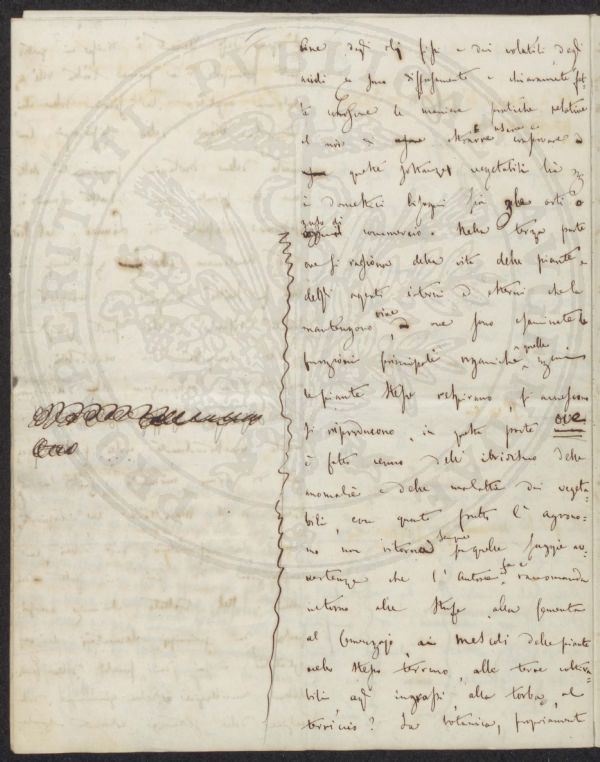 bine degli olj fissi e dei volatili degli
acidi
te le maniere pratiche relative
al modo di estrarre usare e conservare
queste sostanze vegetabili
i domestici bisogni alle arti o
commercio. Nella terza parte
ove si ragiona della vita delle piante e
degli agenti interni ed esterni che la
mantengono vive, e ove sono esaminate le
funzioni principali organiche, quelle
le piante stesse respirano, si accrescono
si riproducono, in questa parte ove
è fatto cenno dell' ibridismo delle
anomalie e delle malattie dei vegeta-
bili, con quanto frutto l'agrono-
mo non ritornerà sempre su quelle sagge av-
vertenze che l'autore fa e raccomanda
intorno alle stufe, alla sementa
al concimajo, ai mescoli delle piante
nello stesso terreno, alle terre coltiva-
bili, agli ingrassi, alla torba, al
terriccio? La botanica, propriamente